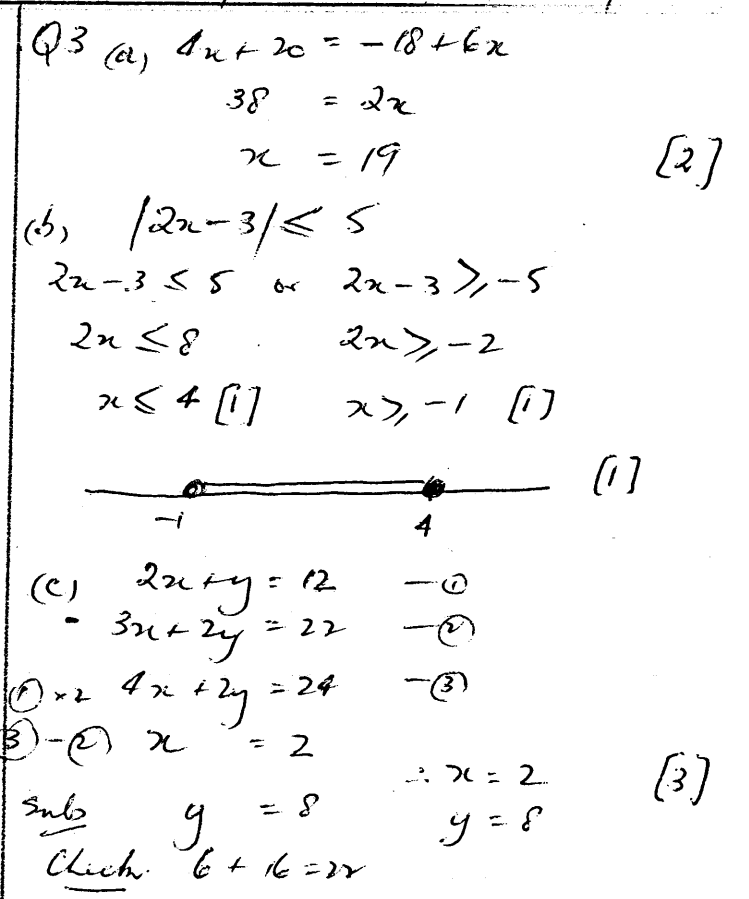 Q3 (a) 4x + 20 = -18 + 6x
38 = 2x
x = 19 [2]
(b) |2x-3| ≤ 5
2x-3 ≤ 5 or 2x-3 ≥ -5
2x ≤ 8 2x ≥ -2
x ≤ 4 [1] x ≥ -1 [1]
[1]
-1 4
(c) 2x+y = 12 —①
3x+2y = 22 —②
①×2 4x+2y = 24 —③
③-② x = 2
∴ x = 2 [3]
Sub y = 8 y = 8
Check. 6 + 16 = 22